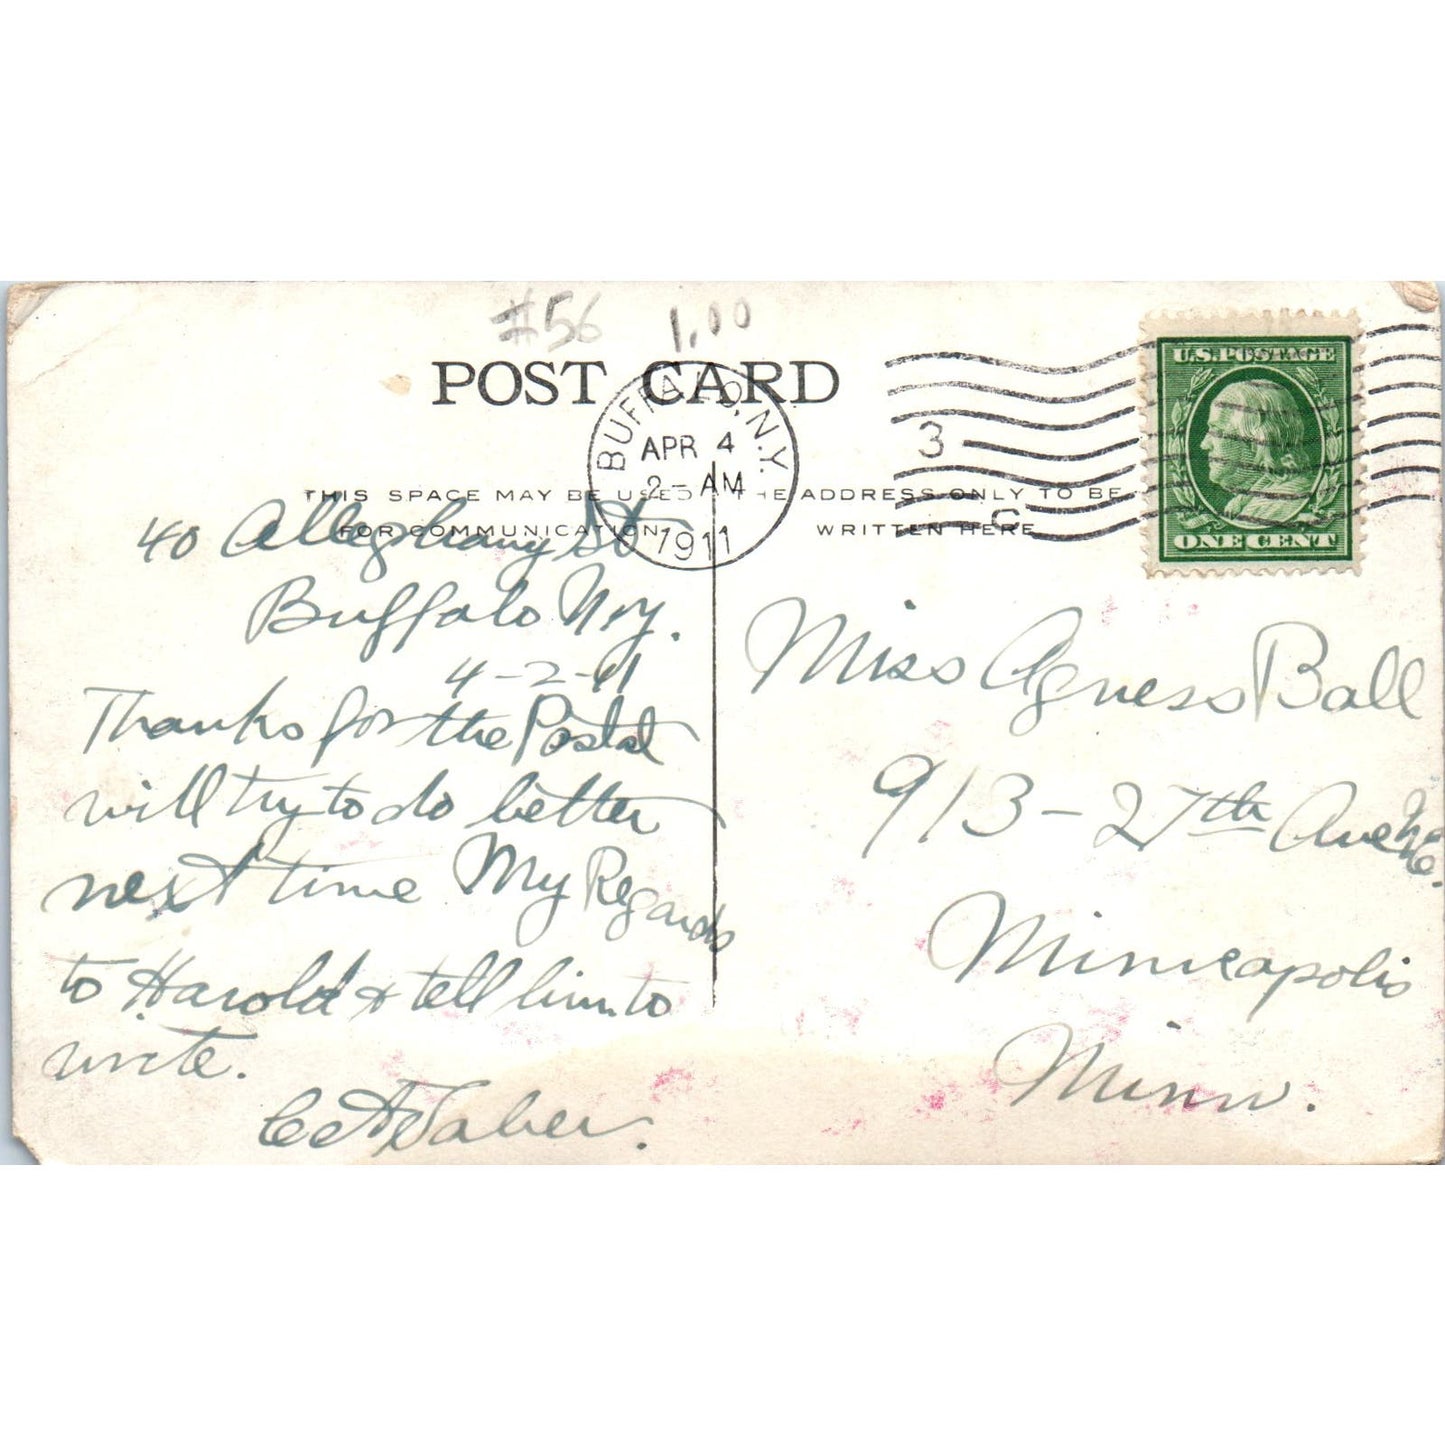 #56 1.00
POST CARD
BUFFALO, N.Y.
APR 4
2-AM
1911
3
C
U.S. POSTAGE
ONE CENT
THIS SPACE MAY BE USED
FOR COMMUNICATION
THE ADDRESS ONLY TO BE
WRITTEN HERE
40 Alleghany St
Buffalo N.Y.
4-2-11
Thanks for the Postal
will try to do better
next time My Regards
to Harold & tell him to
write.
Taber.
Miss Agness Ball
913-27th Ave N.E.
Minneapolis
Minn.